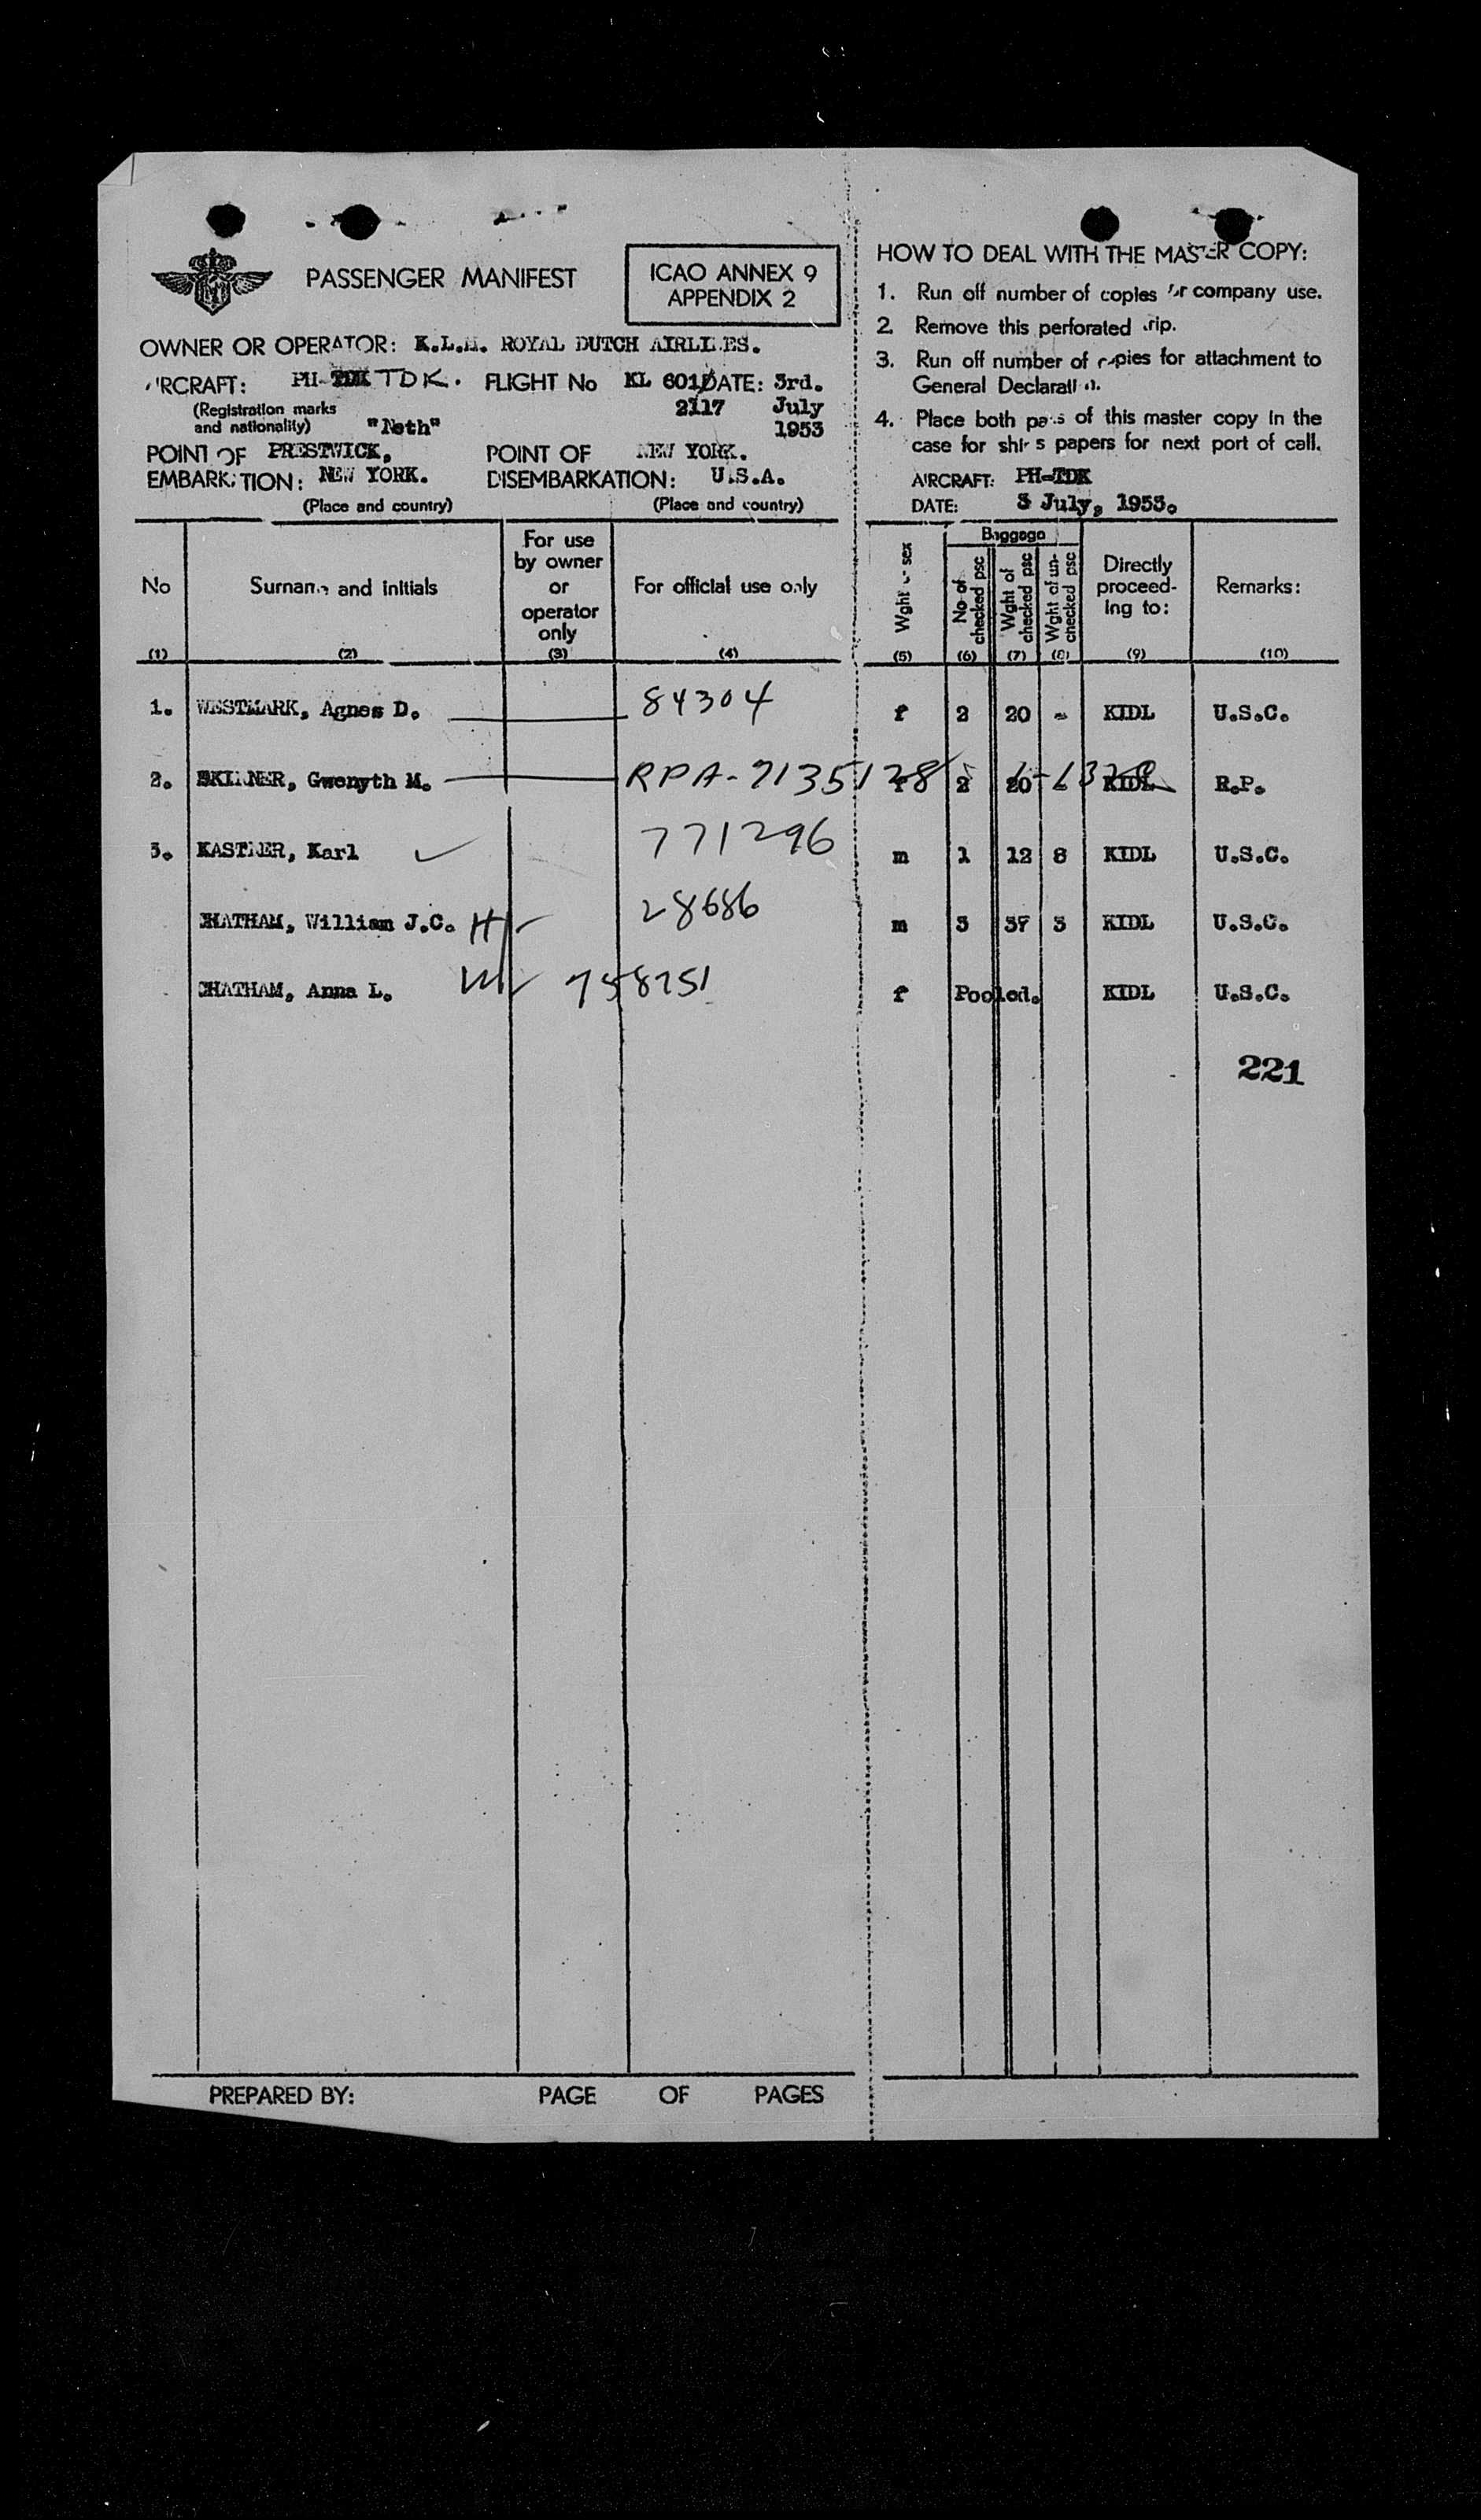 PASSENGER MANIFEST
ICAO ANNEX 9
APPENDIX 2
OWNER OR OPERATOR: K.L.M. ROYAL DUTCH AIRLINES.
AIRCRAFT: PH-TDK TDK. FLIGHT No KL 601/ DATE: 3rd.
(Registration marks 2117 July
and nationality) "Neth" 1953
POINT OF PRESTWICK, POINT OF NEW YORK.
EMBARKATION: NEW YORK. DISEMBARKATION: U.S.A.
(Place and country) (Place and country)
HOW TO DEAL WITH THE MASTER COPY:
1. Run off number of copies for company use.
2. Remove this perforated strip.
3. Run off number of copies for attachment to
General Declaration.
4. Place both parts of this master copy in the
case for ship's papers for next port of call.
AIRCRAFT: PH-TDK
DATE: 3 July, 1953.
No Surname and initials For use by owner or operator only For official use only Wght or sex Baggage No of checked psc Wght of checked psc Wght of un-checked psc Directly proceed-ing to: Remarks:
(1) (2) (3) (4) (5) (6) (7) (8) (9) (10)
1. WESTMARK, Agnes D. 84304 f 2 20 - KIDL U.S.C.
2. SKINNER, Gwenyth M. RPA-7135128 f 2 20 - KIDL R.P.
3. KASTNER, Karl 771296 m 1 12 8 KIDL U.S.C.
CHATHAM, William J.C. H 28686 m 3 37 3 KIDL U.S.C.
CHATHAM, Anna L. W 758751 f Pooled. KIDL U.S.C.
221
PREPARED BY: PAGE OF PAGES